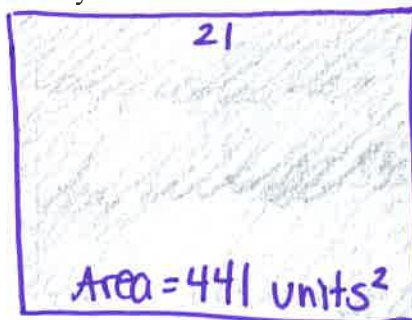 21
Area = 441 units²